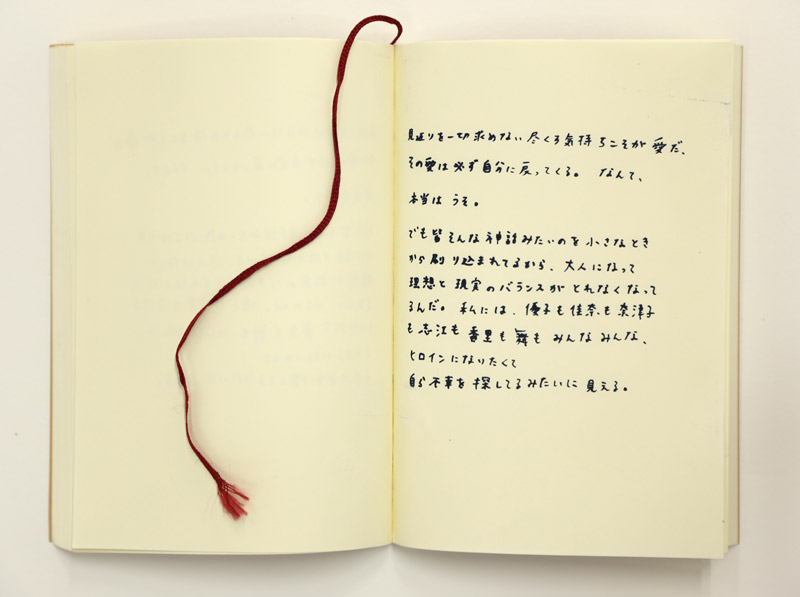 見返りを一切求めない尽くす気持ちこそが愛だ、
その愛は必ず自分に戻ってくる。なんて、
本当は うそ。
でも皆そんな神話みたいのを小さなとき
から刷り込まれてるから、大人になって
理想と現実のバランスがとれなくなって
るんだ。私には、優子も佳奈も奈津子
も志江も香里も舞もみんなみんな、
ヒロインになりたくて
自ら不幸を探してるみたいに見える。